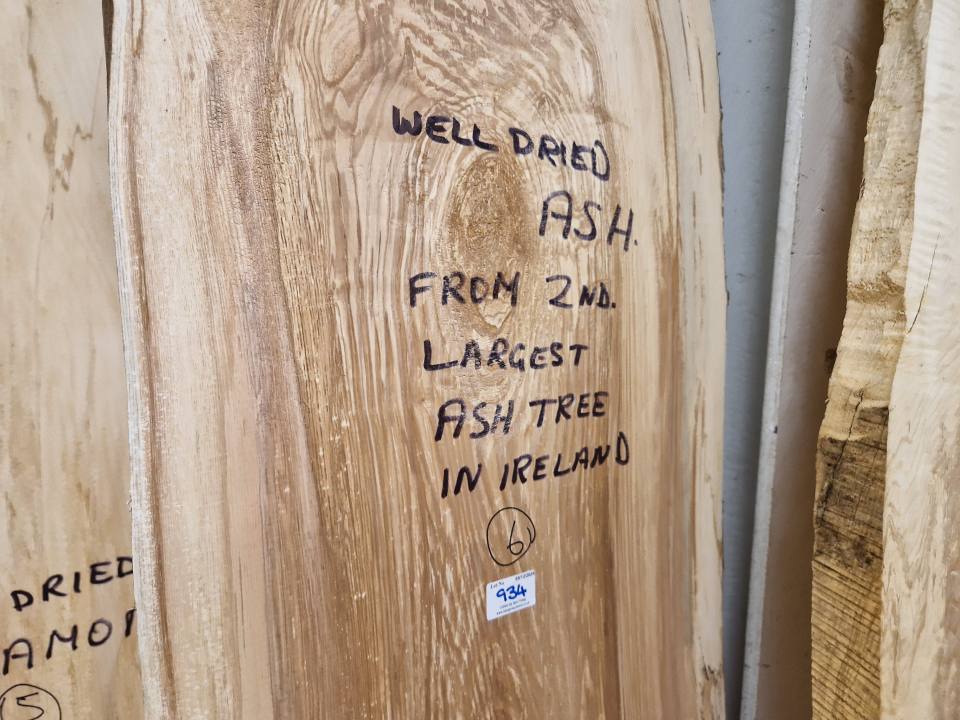 WELL DRIED
ASH.
FROM 2ND.
LARGEST
ASH TREE
IN IRELAND
6
Lot No
934
DRIED
AMOR
5